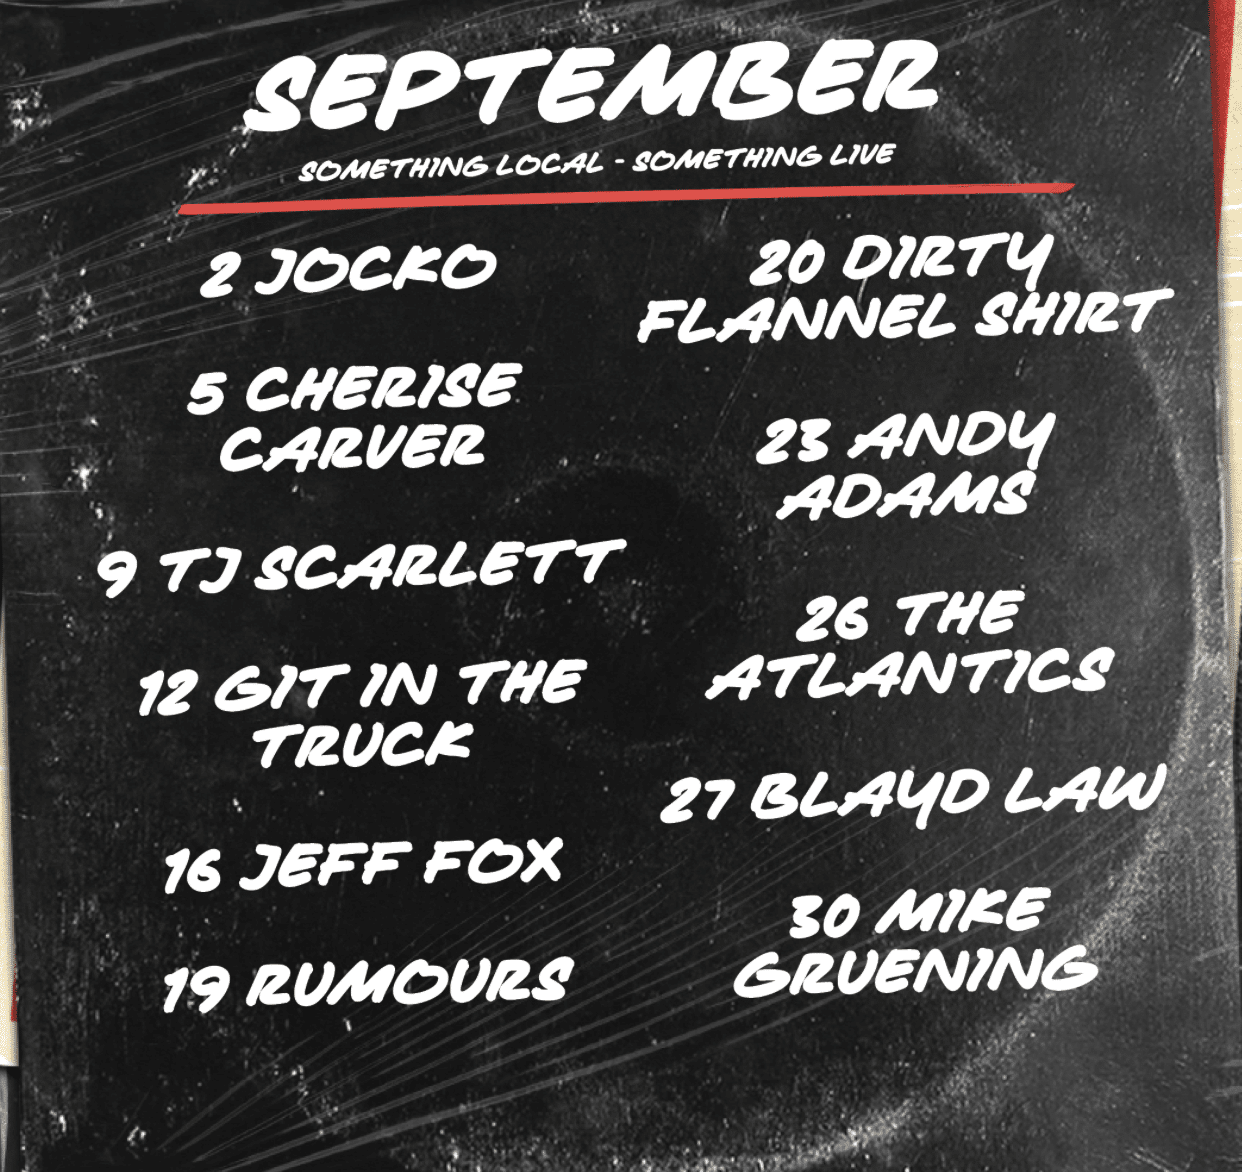 SEPTEMBER
SOMETHING LOCAL - SOMETHING LIVE
2 JOCKO
5 CHERISE
CARVER
9 TJ SCARLETT
12 GIT IN THE
TRUCK
16 JEFF FOX
19 RUMOURS
20 DIRTY
FLANNEL SHIRT
23 ANDY
ADAMS
26 THE
ATLANTICS
27 BLAYD LAW
30 MIKE
GRUENING